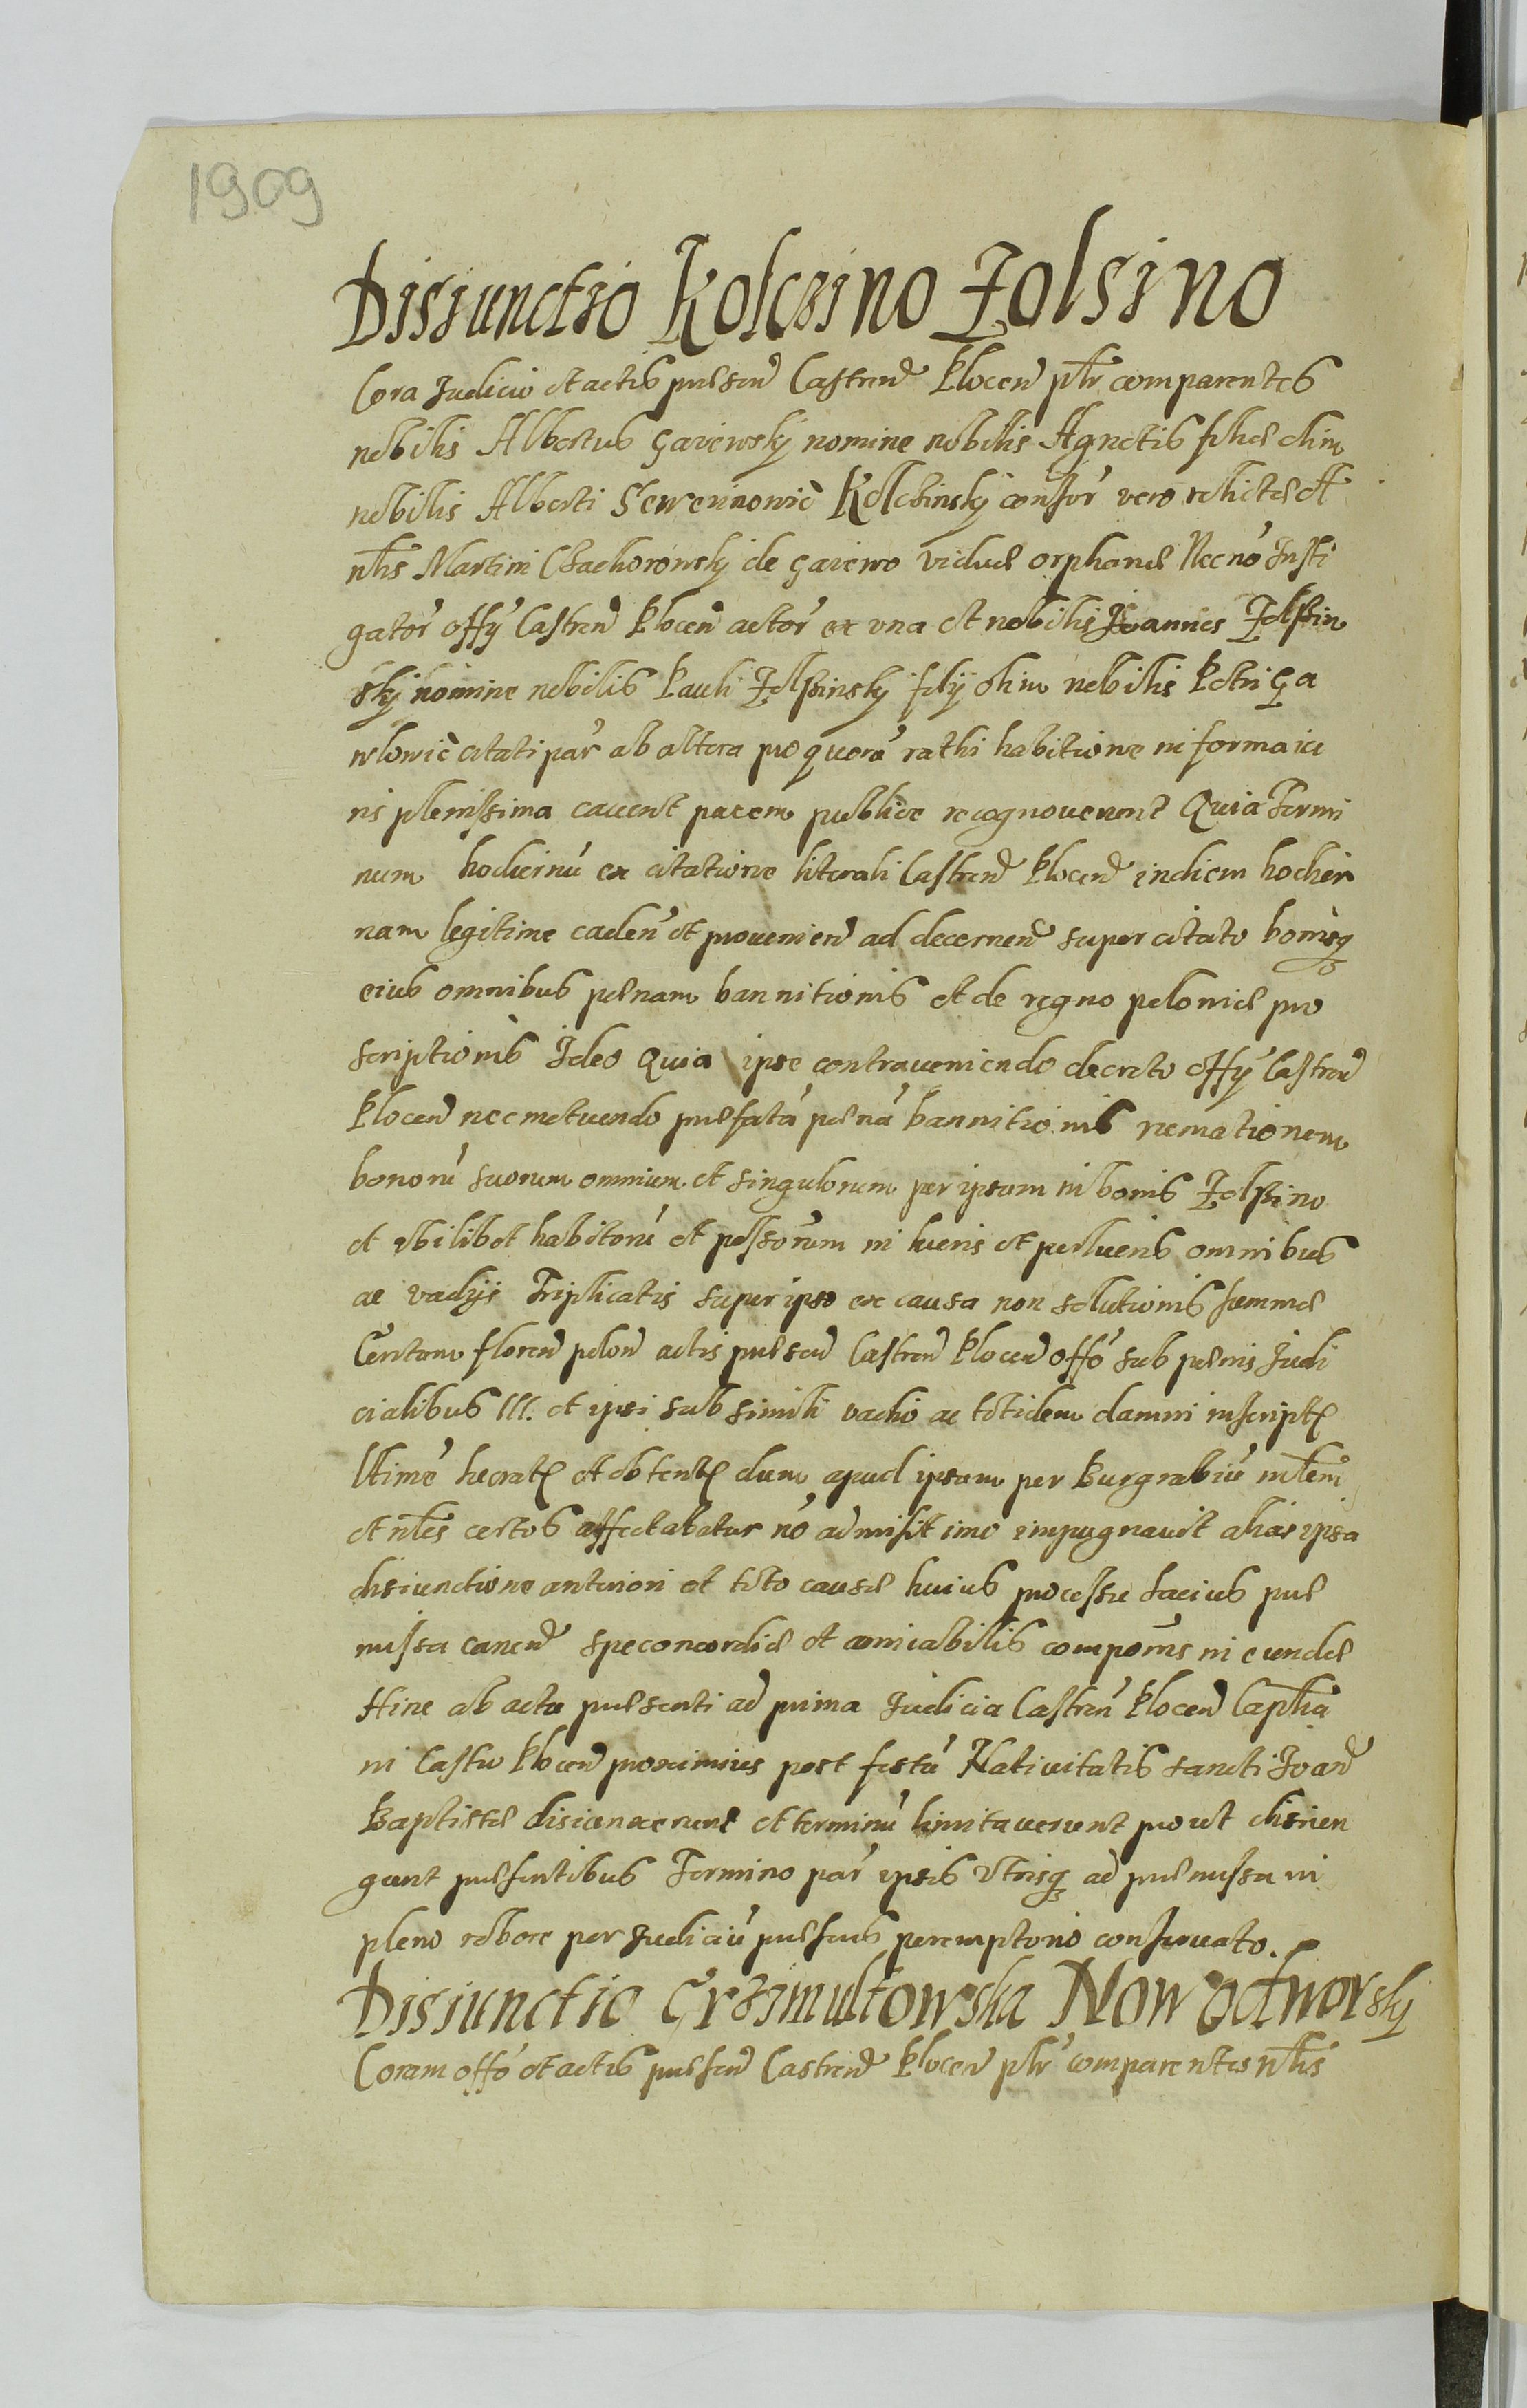 1909
Disiunctio Kolczino Jolsino
Cora Judicio et actis præsen Castren Plocen pltr comparentes
nobilis Albertus Gaiewsky nomine nobilis Agnetis filiæ olim
nobilis Alberti Sewerinowic Kolczinsky consor vero relictæ
nlis Martini Chachorowsky de Gaiewo viduæ orphanæ Necnō Insti
gator offy Castren Plocen actor ex vna et nobilis Joannes Jolßin
sky nomine nobilis Pauli Jolßinsky filÿ olim nobilis Petri Ga
wlowic citati par ab altera pro quorū rathi habitione in forma iu
ris plenissima cauent parem publice recognouerunt Quia Termi
num hodiernū ex citatione literali Castren Plocen in diem hodier
nam legitime caden et prouenien ad decernen super citato bonisq
eius omnibus pænam bannitionis et de regno poloniæ pro
scriptionis Ideo Quia ipse contraveniendo decreto offy Castren
Plocen nec metuendo præfatā pænā bannitionis remationem
bonorū suorum omnium et singulorum per ipsum in bonis Jolßino
et vbilibet habitorū et possorum in lucris et perlucris omnibus
ac vadÿs Triplicatis super ipso ex causa non solutionis summæ
Centum floren polon actis præsen Castren Plocen offō sub pænis Judi
cialibus III. et ipsi sub simili vadio ac totidem damni inscript
ltime lucrat et obtent dum apud ipsum per Burgrabiū mltem
et nles certos affectabatur nō admisit imo impugnauit alias ipsa
disiunctione anteriori et toto causæ huius processu lacius præ
missa canen spe concordiæ et amicabilis componis in eundæ
Hinc ab actu præsenti ad prima Judicia Castren Plocen Capltlia
in Castro Plocen proximius post festū Natiuitatis sancti Joan
Baptistæ disiunxerunt et terminū limitauerunt prout disiun
gunt præsentibus Termino par ipsis vtrisq ad præmissa in
pleno robore per Judiciū præsens peremptorio conseruato.
Disiunctio Crzimultowska Nowodworsky
Coram offō et actis præsen Castren Plocen pltr comparentes nlis